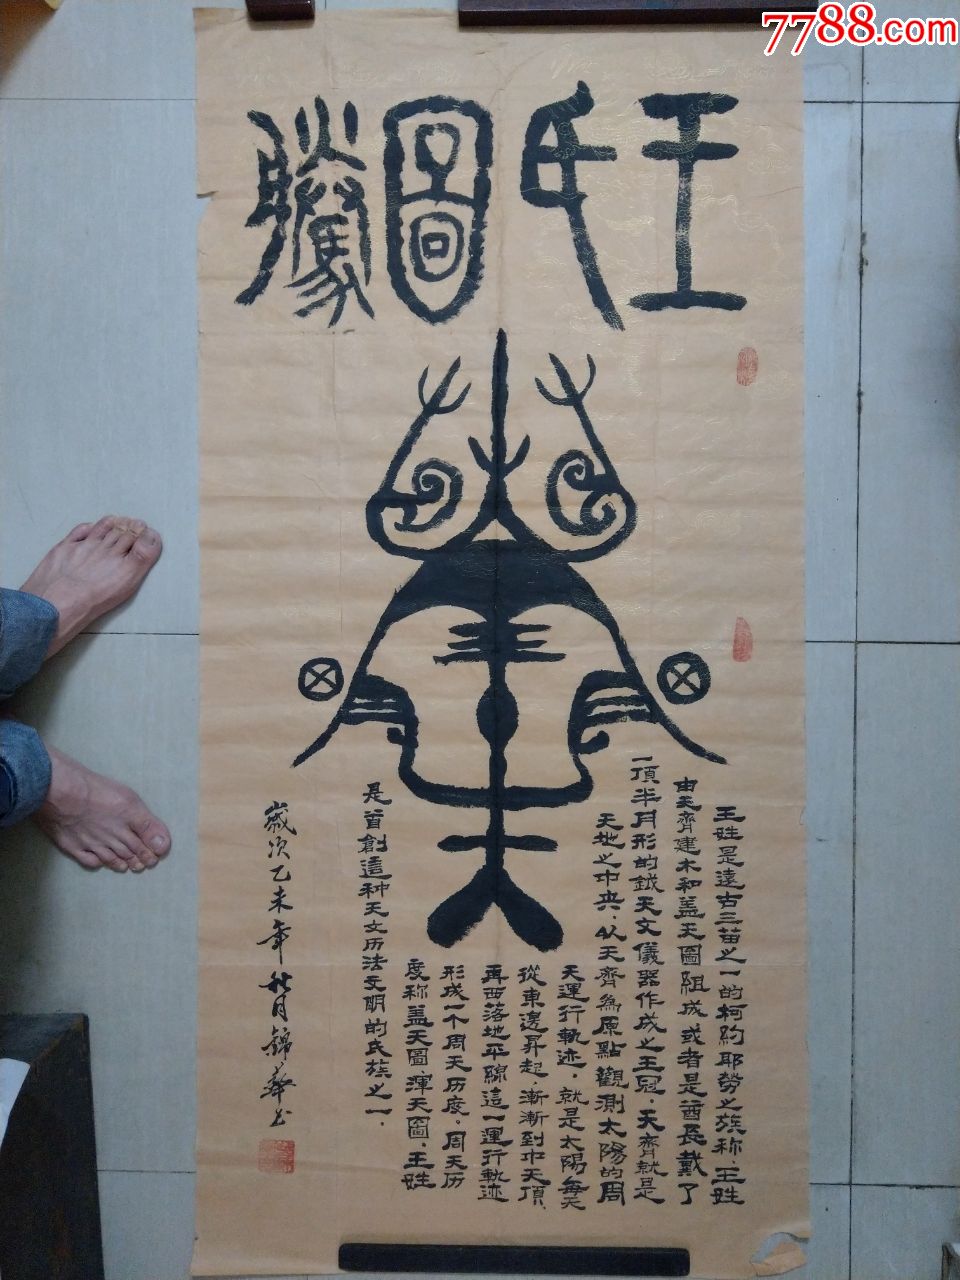 7788.com
王氏圖騰
王姓是遠古三苗之一的柯約耶勞之族称．王姓
由天齊建木和盖天圖組成或者是酋長戴了
一頂半月形的鉞天文儀器作成之王冠．天齊就是
天地之中央．从天齊為原點觀測太陽的周
天運行軌迹．就是太陽每天
從東邊昇起．漸漸到中天頂．
再西落地平線這一運行軌迹
形成一个周天历度．周天历
度称盖天圖．渾天圖．王姓
是首創這种天文历法文明的氏族之一．
歲次乙未年秋月錦華书